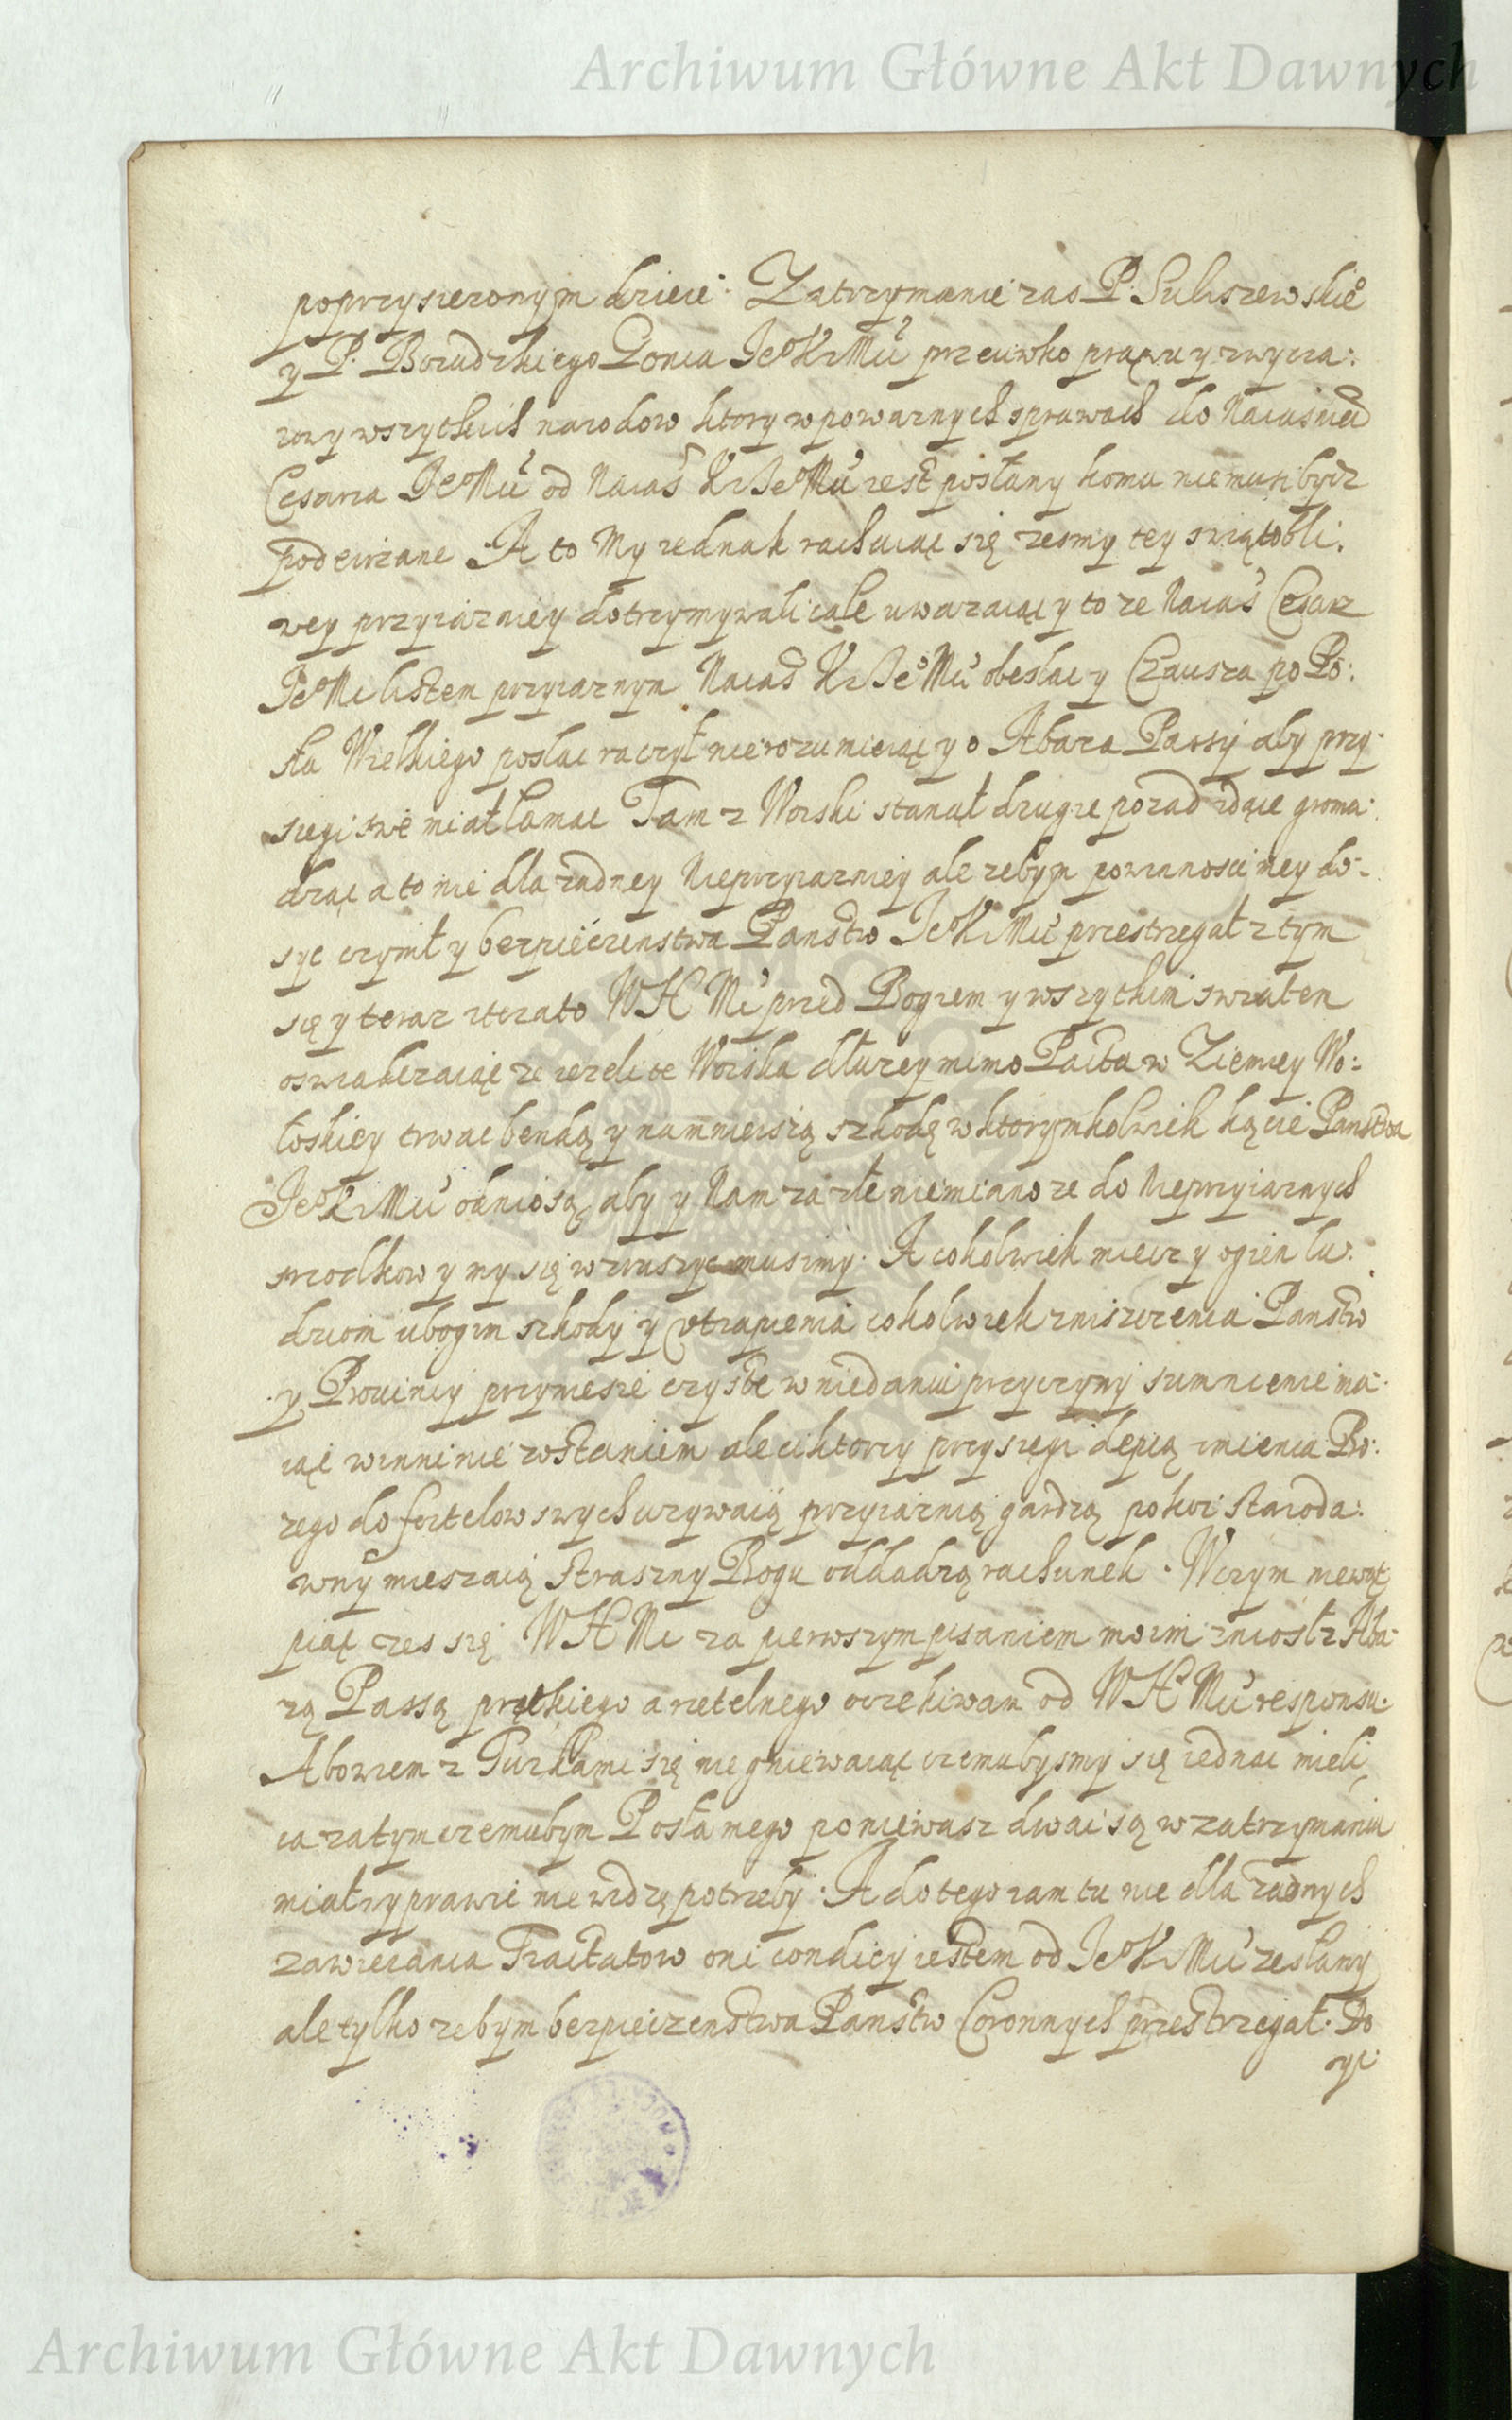 Archiwum Główne Akt Dawnych
poprzysięzonym dzieie. Zatrzymanie zas P. Suliszewskie°
y P. Boradzkiego Gonca Je° K Mći przeciwko prawu y zwycza:
iowy wszytkich narodow ktory w powaznych sprawach do Naiasnieẏ
Cesarza Je° Mći od Naias K Je° Mći iest posłany komu nie musi bydz
podeirzane. A to My iednak rachuiąc się zesmy tey swiątobli.
wey przyiazniey dotrzymywali cale uwazaiąc y to ze Naias Cesarz
Je° Mc listem przyiaznym Naias K Je° Mći obesłac y Czausza po Po:
sła Wielkiego posłac raczył nierozumieiąc y o Abaza Passy aby przy:
sięgi swe miał łamac Tam z Woiski stanął drugie pozad idące groma:
dząc a to nie dla zadney Nieprzyiazniey ale zebym powinnosci mey do:
syc czynił y bezpieczenstwa Panstw Je° K Mći przestrzegał z tym
się y teraz iterato WH Mći przed Bogiem y wszytkim swiatem
oswiadczaiąc ze iezeli te Woiska dłuzey mimo Pacta w Ziemiey Wo:
łoskiey trwac bendą y namnieiszą szkodę w ktorymkolwiek kącie Panstwa
Je° K Mći odniosą, aby y Nam za złe nie miano ze do Nieprzyiaznych
srzodkow y my się wzruszyc musimy. A cokolwiek miecz y ogien lu:
dziom ubogim szkody y utrapienia cokolwiek zniszczenia Panstw
y Prouinciy przyniesie czyste w niedaniu przyczyny sumnienie ma:
iąc winni nie zostaniem ale ci ktorzy przysięgi depcą imienia Bo:
zego do fortelow swych uzywaią przyiaznią gardzą pokoi staroda:
wny mieszaią straszny Bogu oddadzą rachunek. W czym niewąt
piąc zes się WH Mc za pierwszym pisaniem moim zniosł z Aba:
zą Passą prętkiego a rzetelnego oczekiwam od WH Mći responsu.
Abowiem z Turkami się nie gniewaiąc czemubysmy się iednac mieli,
ia zatym czemubym Posła mego poniewasz dwai są w zatrzymaniu
miał wyprawic nie widzę potrzeby. A do tego iam tu nie dla zadnych
zawierania Tractatow oni condicy iestem od Je° K Mći zesłany
ale tylko zebym bezpieczenstwa Panstw Coronnych przestrzegał. Do
syc
Archiwum Główne Akt Dawnych